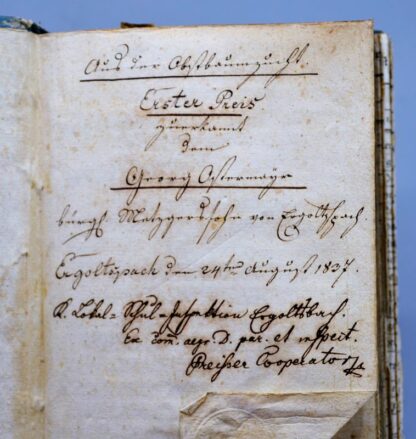 Aus der Obstbaumzucht.
Erster Preis
zuerkannt
dem
Georg Ostermayr
bürgl. Metzgerssohn von Ergoltspach.
Ergoltspach den 24ten August 1837.
K. Lokal= Schul=Inspektion Ergoltsbach.
Ex com. aegr. D. par. et inspect.
Preißer Cooperator